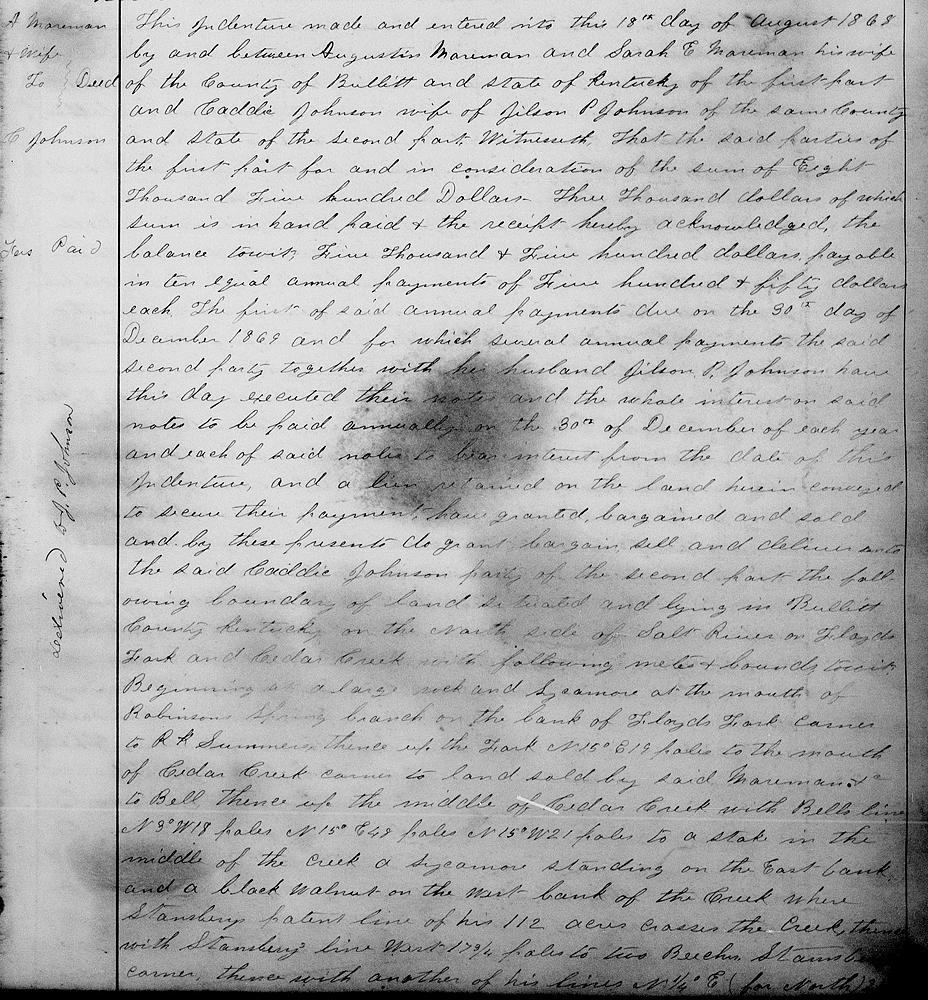 A Mareman
& Wife
To Deed
C Johnson
Fees Paid
Delivered to J. P. Johnson
This Indenture made and entered into this 18th day of August 1868
by and between Augustin Mareman and Sarah E Mareman his wife
of the County of Bullitt and state of Kentucky of the first part
and Caddie Johnson wife of Jilson P Johnson of the same County
and state of the second part. Witnesseth, That the said parties of
the first part for and in consideration of the sum of Eight
Thousand Five hundred Dollars Three Thousand dollars of which
sum is in hand paid & the receipt hereby acknowledged, the
balance towit; Five Thousand & Five hundred dollars, payable
in ten equal annual payments of Five hundred & fifty dollars
each. The first of said annual payments due on the 30th day of
December 1869 and for which several annual payments the said
second party together with her husband Jilson P. Johnson have
this day executed their notes and the whole interest on said
notes to be paid annually on the 30th of December of each year
and each of said notes to bear interest from the date of this
Indenture, and a lien retained on the land herein conveyed
to secure their payment, have granted, bargained and sold
and by these presents do grant bargain, sell and deliver unto
the said Caddie Johnson party of the second part the foll-
owing boundary of land situated and lying in Bullitt
County Kentucky on the North side of Salt River on Floyds
Fork and Cedar Creek with following metes & bounds, towit;
Beginning at a large rock and Sycamore at the mouth of
Robinsons Spring branch on the bank of Floyds Fork corner
to R Summers, thence up the Fork N 15° E 19 poles to the mouth
of Cedar Creek corner to land sold by said Mareman &c
to Bell thence up the middle of Cedar Creek with Bells line
N 3° W 18 poles N 15° E 48 poles N 15° W 21 poles to a stake in the
middle of the creek a sycamore standing on the East bank
and a black Walnut on the West bank of the Creek where
Stansberys patent line of his 112 acres crosses the Creek, thence
with Stansberys line West 173/4 poles to two Beeches Stansbe
corner, thence with another of his lines N 1/4° E (for North)